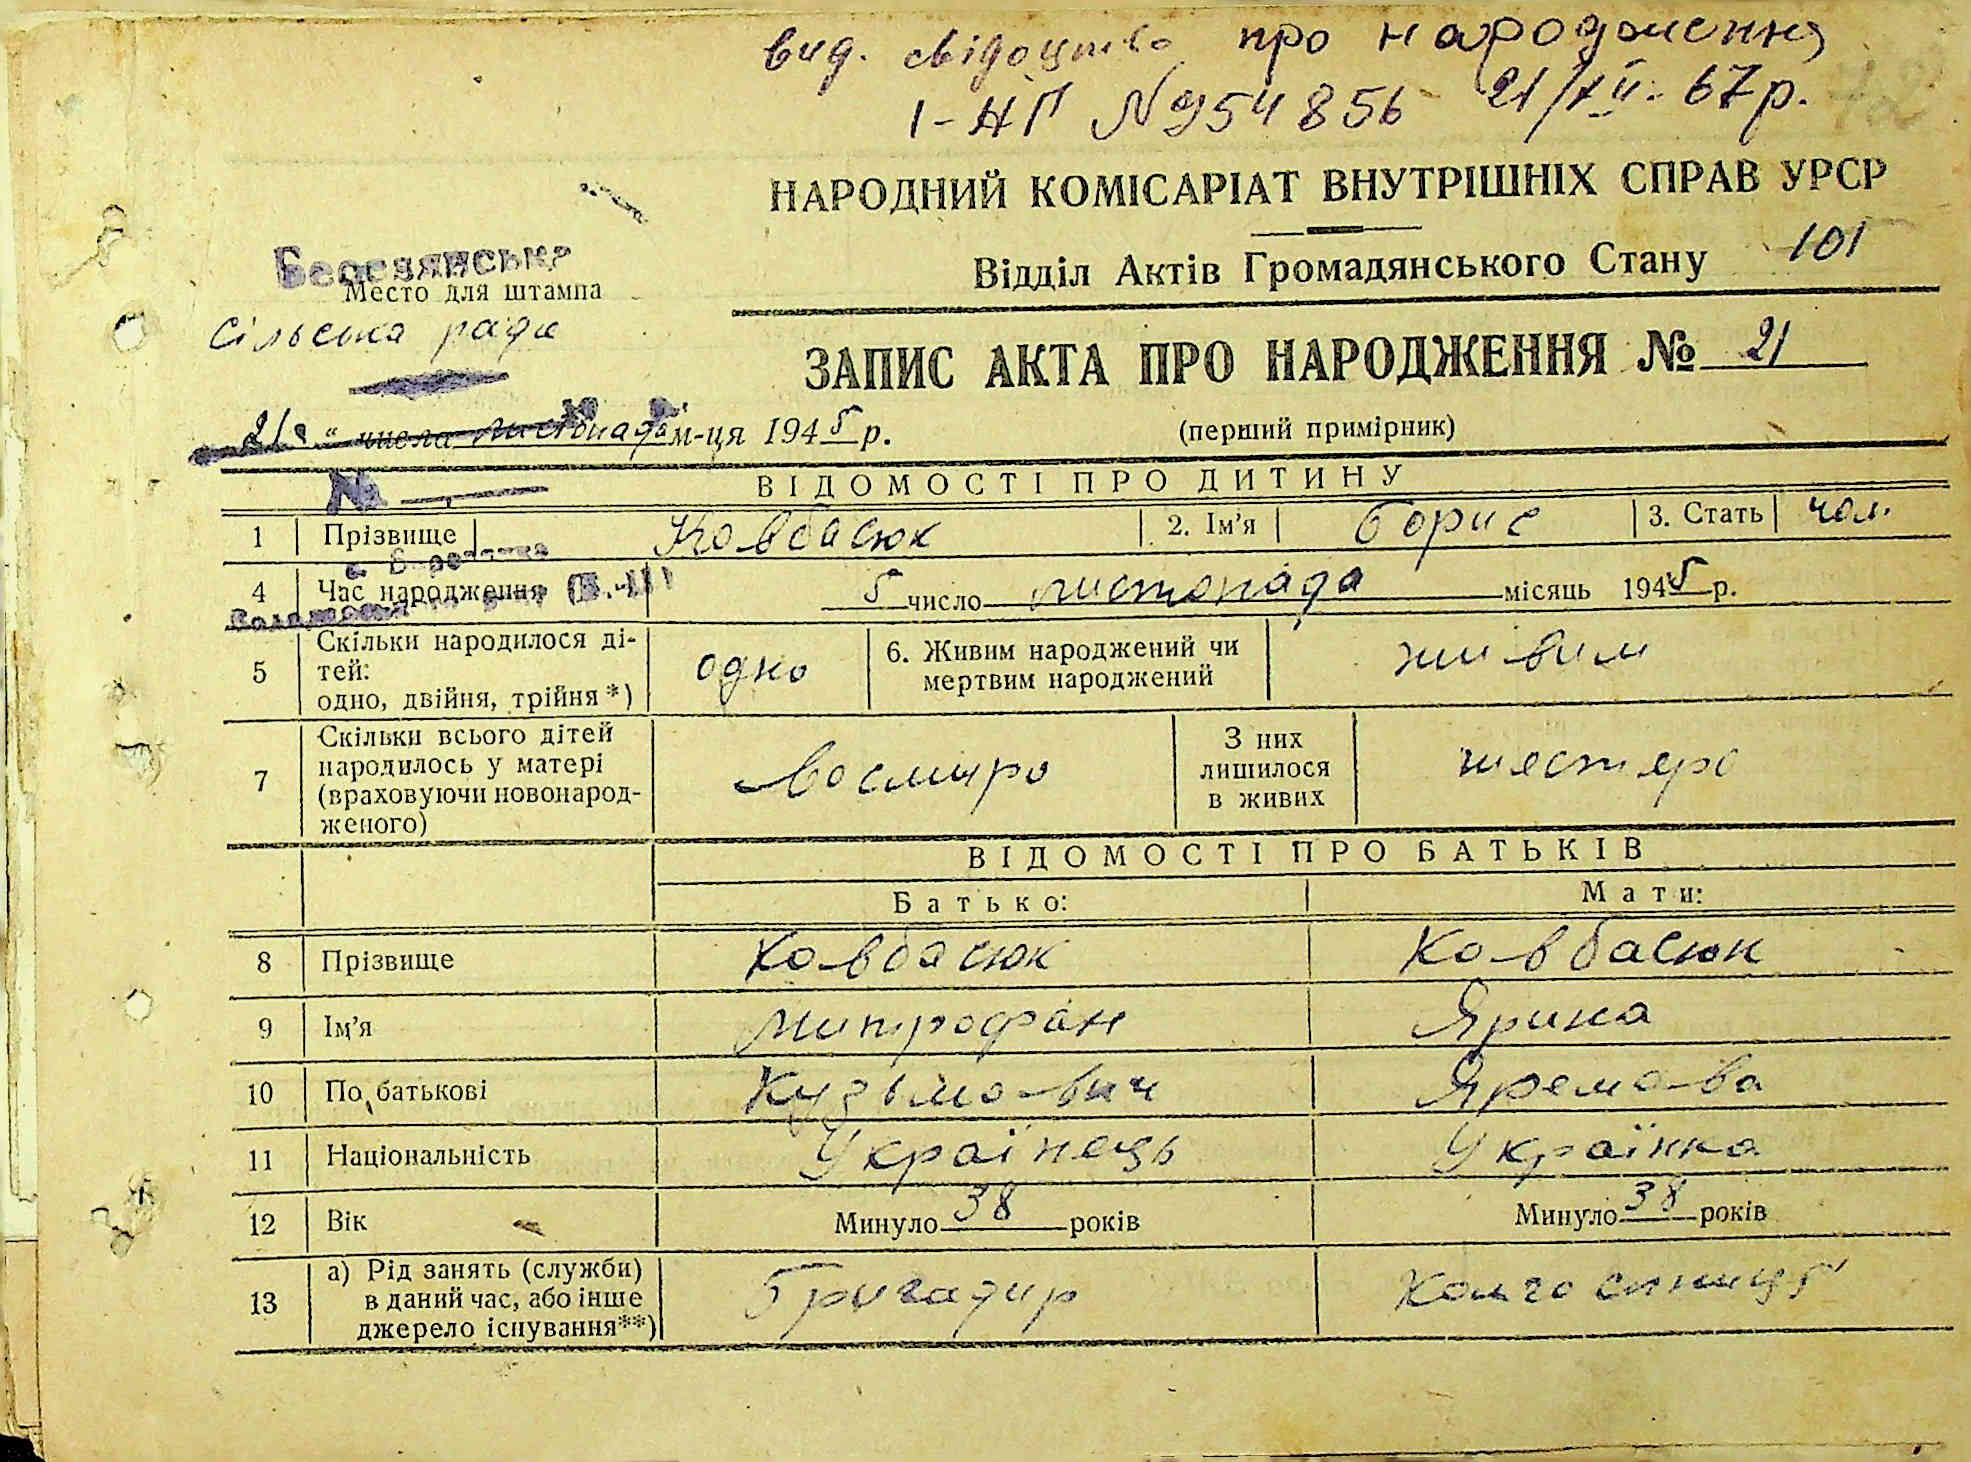 вид. свідоцтво про народження
І-НП №954856 21/XII-67р.
НАРОДНИЙ КОМІСАРІАТ ВНУТРІШНІХ СПРАВ УРСР
Відділ Актів Громадянського Стану 101
Место для штампа
сільська рада
ЗАПИС АКТА ПРО НАРОДЖЕННЯ № 21
21 " числа листопада м-ця 1945 р.
(перший примірник)
№
ВІДОМОСТІ ПРО ДИТИНУ
1 Прізвище Ковбасюк 2. Ім'я Борис 3. Стать чол.
4 Час народження 5 число листопада місяць 1945 р.
5 Скільки народилося ді-
тей:
одно, двійня, трійня *) одно 6. Живим народжений чи
мертвим народжений живим
7 Скільки всього дітей
народилось у матері
(враховуючи новонарод-
женого) восмиро З них
лишилося
в живих шестеро
ВІДОМОСТІ ПРО БАТЬКІВ
Батько: Мати:
8 Прізвище Ковбасюк Ковбасюк
9 Ім'я Митрофан Ярина
10 По батькові Кузьмович Яремова
11 Національність Українець Українка
12 Вік Минуло 38 років Минуло 38 років
13 а) Рід занять (служби)
в даний час, або інше
джерело існування**) Бригадир